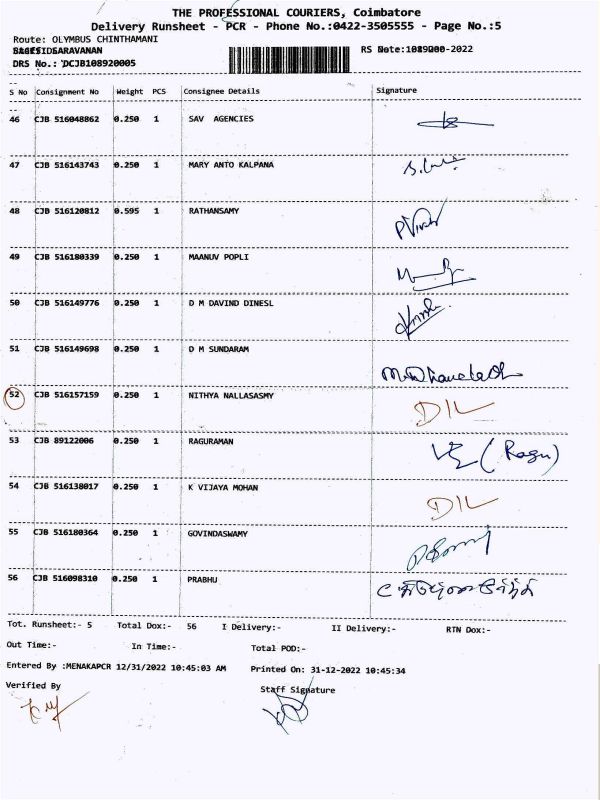 THE PROFESSIONAL COURIERS, Coimbatore
Delivery Runsheet - PCR - Phone No.:0422-3505555 - Page No.:5
Route: OLYMBUS CHINTHAMANI
DRS No.: DCJB108920005
S No Consignment No Weight PCS Consignee Details Signature
46 CJB 516048862 0.250 1 SAV AGENCIES
47 CJB 516143743 0.250 1 MARY ANTO KALPANA
48 CJB 516120812 0.595 1 RATHANSAMY
49 CJB 516180339 0.250 1 MAANUV POPLI
50 CJB 516149776 0.250 1 D M DAVIND DINESL
51 CJB 516149698 0.250 1 D M SUNDARAM
52 CJB 516157159 0.250 1 NITHYA NALLASASMY D/L
53 CJB 89122006 0.250 1 RAGURAMAN (Ragu)
54 CJB 516138017 0.250 1 K VIJAYA MOHAN D/L
55 CJB 516180364 0.250 1 GOVINDASWAMY
56 CJB 516098310 0.250 1 PRABHU
Tot. Runsheet:- 5 Total Dox:- 56 I Delivery:- II Delivery:- RTN Dox:-
Out Time:- In Time:- Total POD:-
Entered By :MENAKAPCR 12/31/2022 10:45:03 AM Printed On: 31-12-2022 10:45:34
Verified By Staff Signature